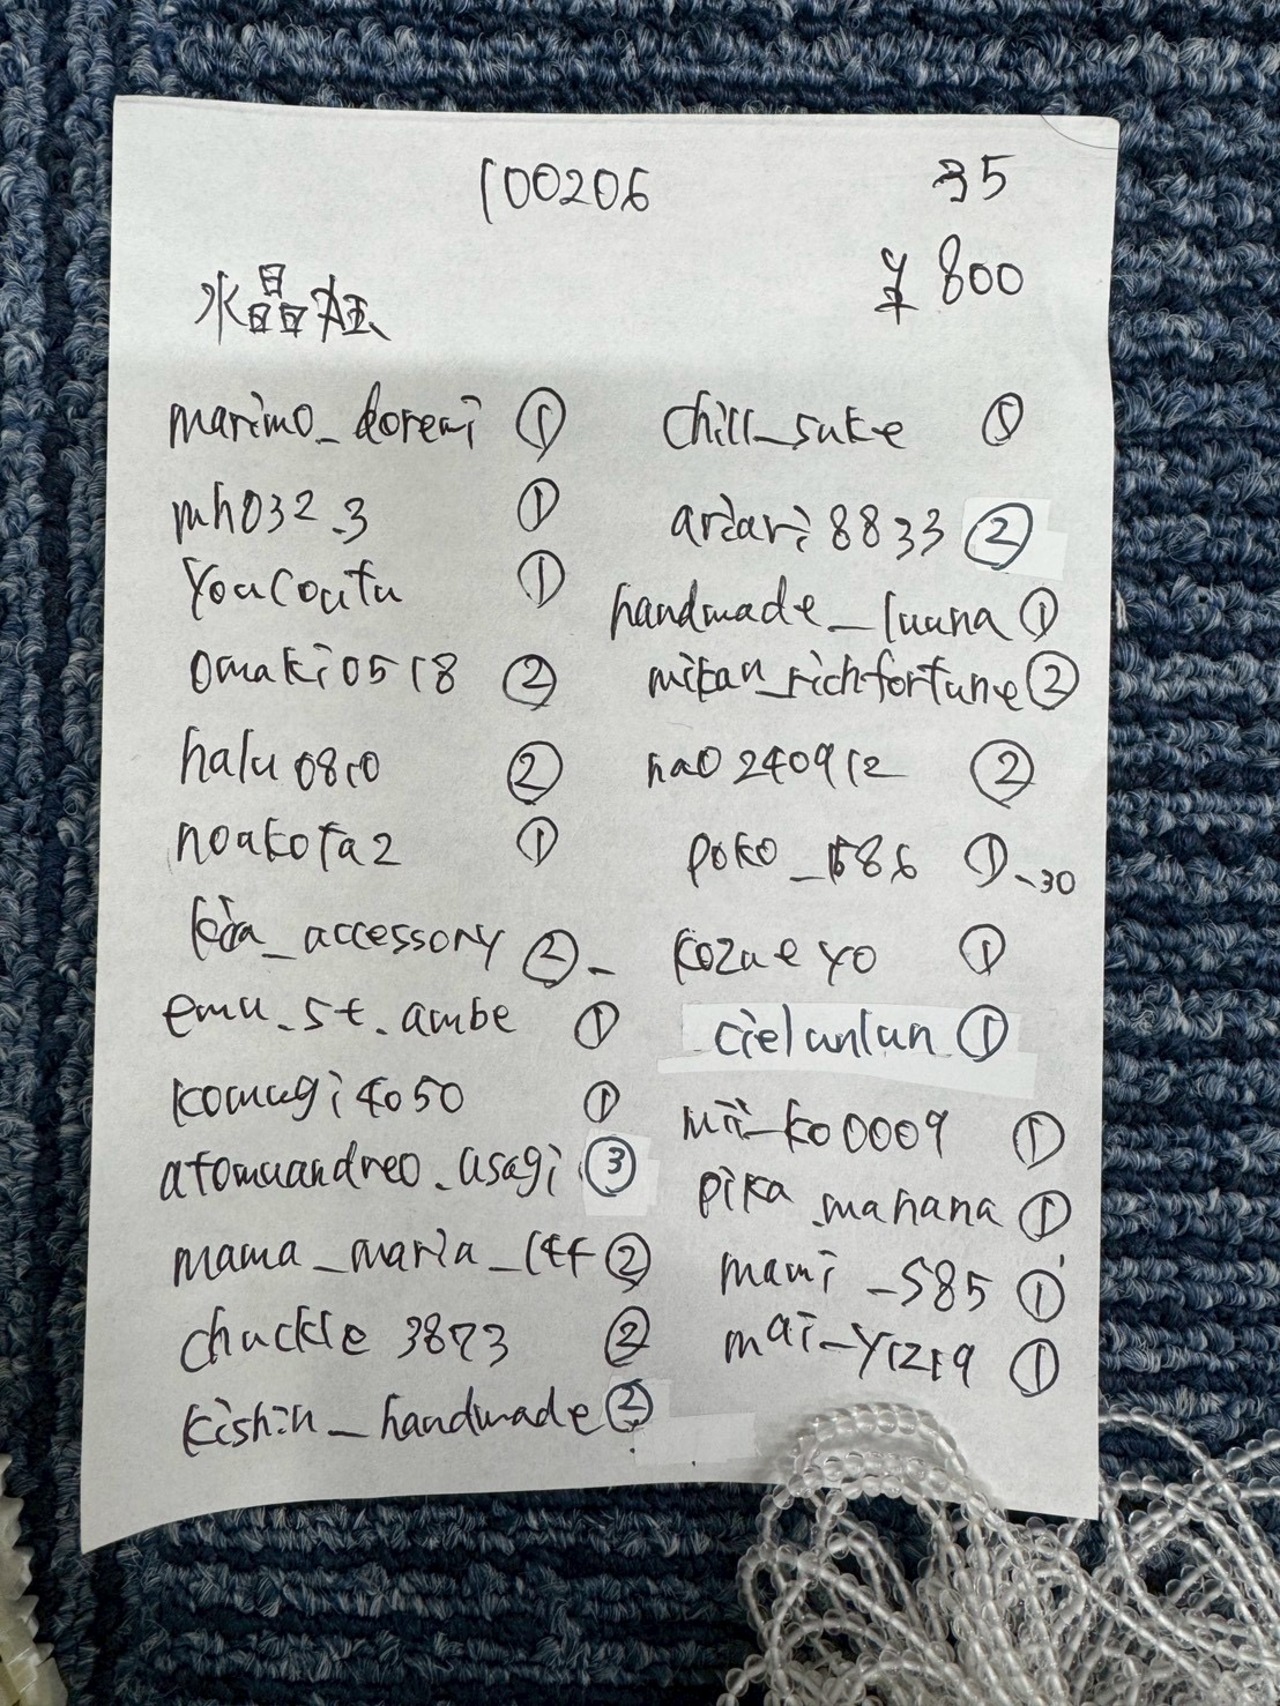 100206
35
¥800
水晶短
marimo_doremi ①
mh032_3 ①
youcoutu ①
omaki0518 ②
halu0810 ②
noakota2 ①
②-
emu.st.ambe ①
komugi4050 ①
atomuandreo_asagi ③
mama_maria_ ②
chuckle3873 ②
kishin_handmade ②
chill_suke
ariari8833 ②
handmade_luuna ①
mikan_richfortune ②
nao240912 ②
①-30
kozueyo ①
cielunlun ①
mii_ko0009 ①
pika_manana ①
mami_585 ①
mai_y1219 ①